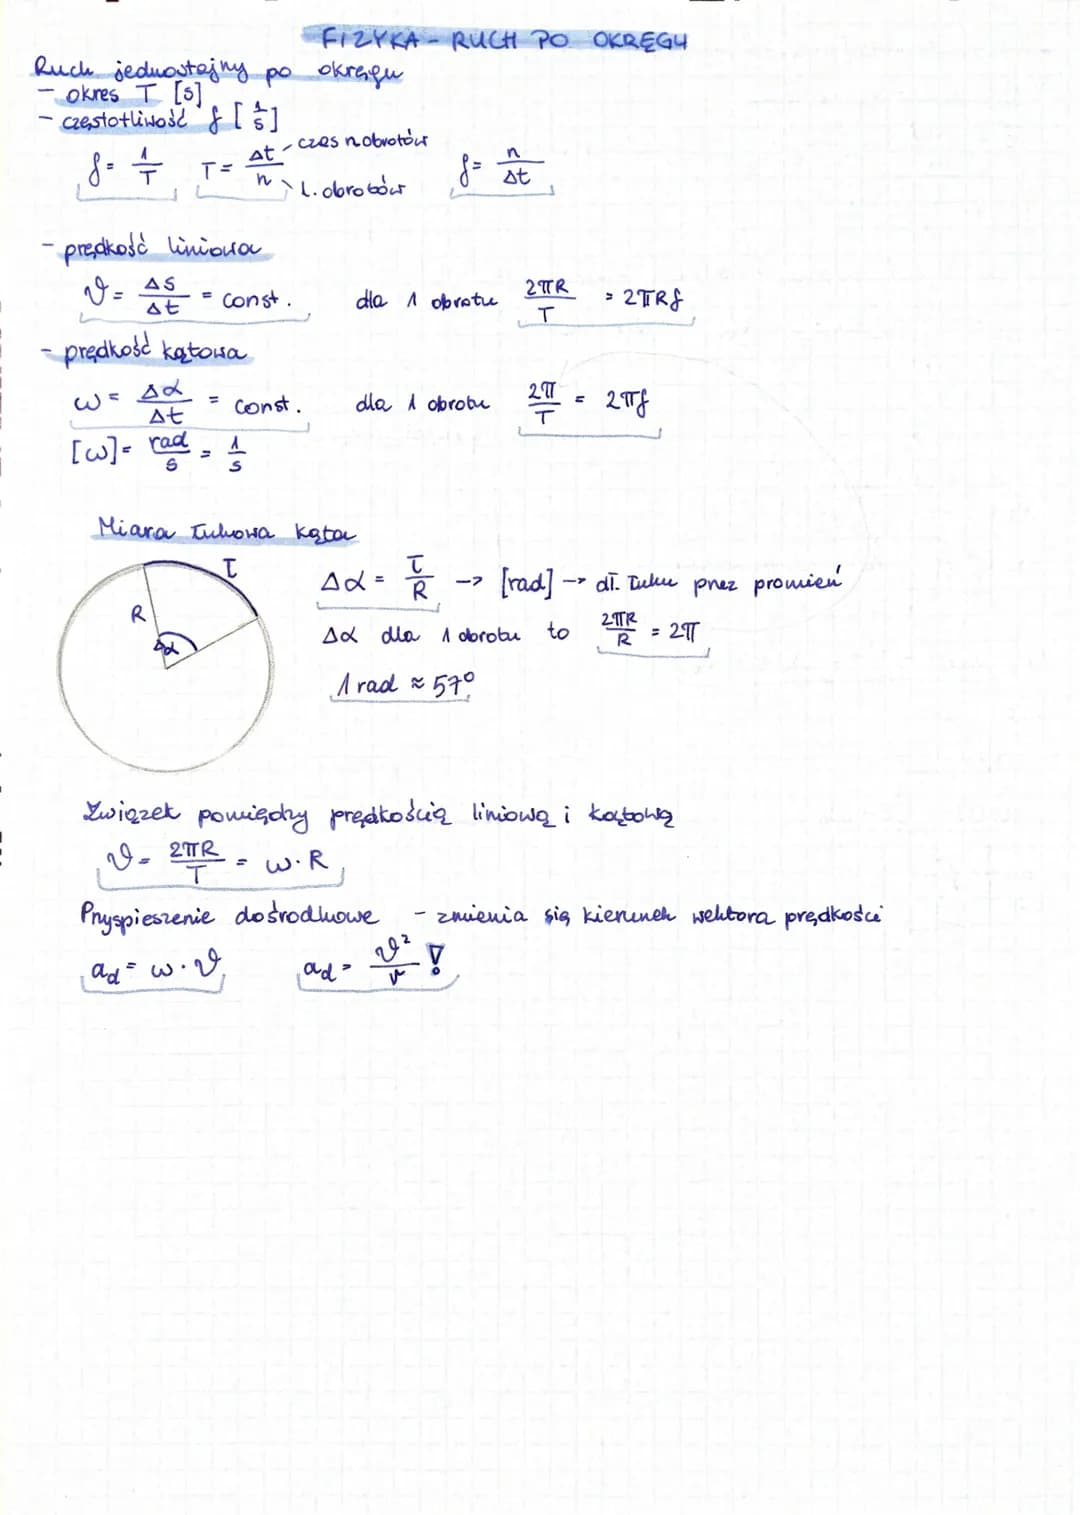 FIZYKA - RUCH PO OKRĘGU
Ruch jednostajny po okręgu
- okres T [s]
- częstotliwość f [1/s]
f = 1/T T = Δt/n czas n obrotów l. obrotów f = n/Δt
- prędkość liniowa
v = ΔS/Δt = const. dla 1 obrotu 2πR/T = 2πRf
- prędkość kątowa
ω = Δα/Δt = const. dla 1 obrotu 2π/T = 2πf
[ω] = rad/s = 1/s
Miara łukowa kąta
ł
R
Δα
Δα = ł/R -> [rad] -> dł. łuku przez promień
Δα dla 1 obrotu to 2πR/R = 2π
1 rad ≈ 57°
Związek pomiędzy prędkością liniową i kątową
v = 2πR/T = ω·R
Przyspieszenie dośrodkowe - zmienia się kierunek wektora prędkości
ad = ω·v ad = v²/r !